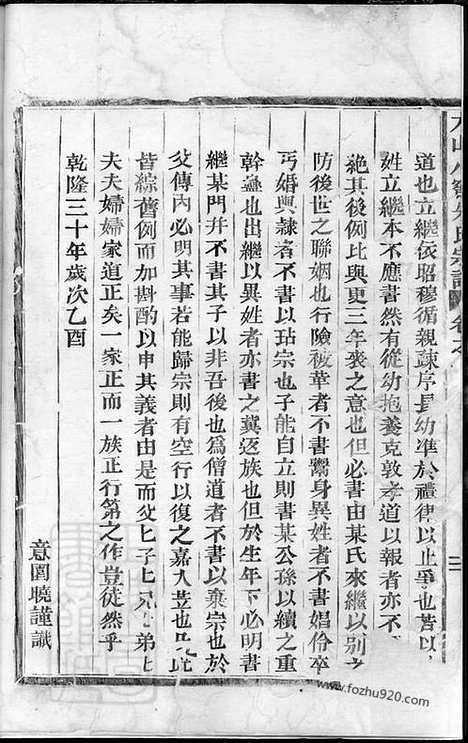 道也立繼依昭穆循親疎序長幼準於禮律以止爭也若以
姓立繼本不應書然有從幼抱養克敦孝道以報者亦不
絶其後例比與更三年喪之意也但必書由某氏來繼以别之
防後世之聯姻也行險被華者不書鬻身異姓者不書娼伶卒
丐婚與隸者不書以玷宗也子能自立則書某公孫以續之重
幹蠱也出繼以異姓者亦書之冀返族也但於生年下必明書
繼某門并不書其子以非吾後也爲僧道者不書以棄宗也於
父傳內必明其事若能歸宗則有空行以復之嘉人莅也凡此
皆綜舊例而加斟酌以申其義者由是而父父子子兄兄弟弟
夫夫婦婦家道正矣一家正而一族正行第之作豈徒然乎
乾隆三十年歲次乙酉
意園曉謹識
氏宗譜
www.fozhu920.com